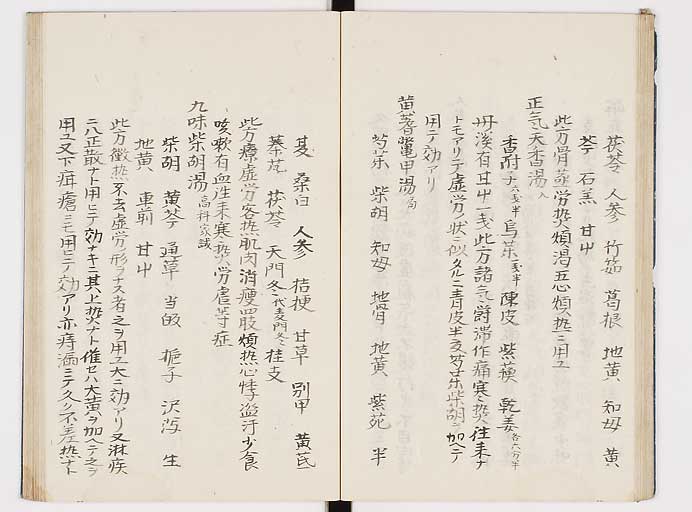 茯苓 人参 竹筎 葛根 地黄 知母 黄
芩 石羔 甘中
此方骨蒸労熱煩渇五心煩熱ニ用ユ
正気天香湯 入
香附子 八戔半 烏薬 二戔半 陳皮 紫蘓 乾姜 各六分半
丹溪有甘中一戔此方諸気欝滞作痛寒熱往来ナ
トモアリテ虚労ノ状ニ似タルニ青皮半夏芍薬柴胡ヲ加ヘテ
用テ効アリ
黄蓍鼈甲湯 局
芍薬 柴胡 知母 地骨 地黄 紫苑 半
夏 桑白 人参 桔梗 甘草 別甲 黄芪
蓁艽 茯苓 天門冬 一代麦門冬 桂支
此方療虚労客熱肌肉消痩四肢煩熱心悸盗汗少食
咳嗽有血往来寒熱労虐等症
九味柴胡湯 高科家試
柴胡 黄芩 通草 当皈 梔子 沢泻 生
地黄 車前 甘中
此方微熱不去虚労ノ形ヲナス者之ヲ用ユ大ニ効アリ又淋疾
ニ八正散ナト用ヒテ効ナキニ其上熱ナト催セハ大黄ヲ加ヘテ之ヲ
用ユ又下疳瘡ニモ用ヒテ効アリ亦痔漏ニテ久ク不差熱ナト